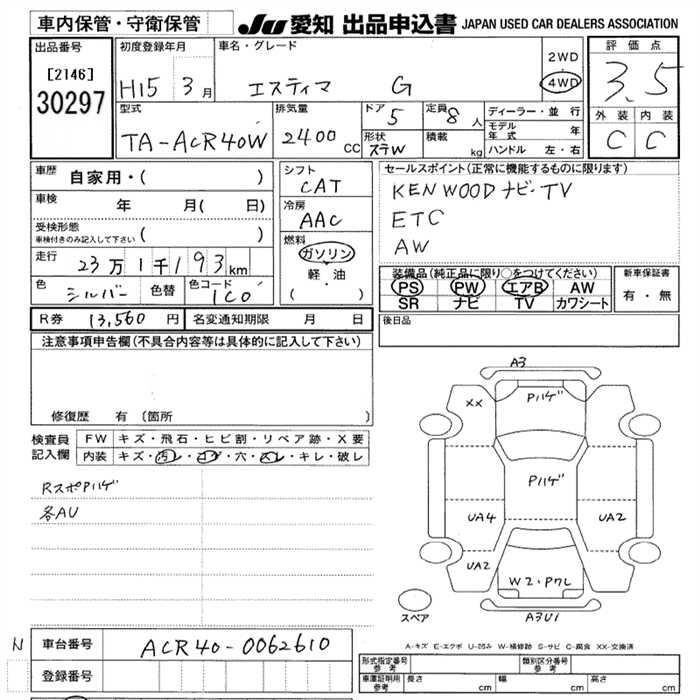 車内保管・守衛保管
JU 愛知 出品申込書 JAPAN USED CAR DEALERS ASSOCIATION
出品番号
[2146]
30297
初度登録年月
H15 3月
車名・グレード
エスティマ G
2WD
4WD
評価点
3.5
外装 内装
C C
型式
TA-ACR40W
排気量
2400cc
ドア 5
形状 ステW
定員 8人
積載 kg
ディーラー・並行
モデル年式 年
ハンドル 左・右
車歴 自家用・( )
車検 年 月( 日)
受検形態
車検付きのみ記入して下さい ( )
走行 23万1千193km
色 シルバー 色替 色コード 1C0
シフト
CAT
冷房
AAC
燃料
ガソリン
軽・油
( ・ )
セールスポイント(正常に機能するものに限ります)
KENWOODナビ・TV
ETC
AW
装備品(純正品に限り○をつけてください)
PS PW エアB AW
SR ナビ TV カワシート
新車保証書
有・無
R券 13,560円 名変通知期限 月 日
後日品
注意事項申告欄(不具合内容等は具体的に記入して下さい)
修復歴 有 〔箇所 〕
検査員記入欄
FW キズ・飛石・ヒビ割・リペア跡・X要
内装 キズ・汚レ・コゲ・穴・スレ・キレ・破レ
RスポPハゲ
各AU
A3
XX
Pハゲ
Pハゲ
UA4
UA2
UA2
W2・Pクレ
A3U1
スペア
A-キズ E-エクボ U-凹み W-補修跡 S-サビ C-腐食 XX-交換済
N 車台番号 ACR40-0062610
登録番号
形式指定番号 参考
類別区分番号 参考
車庫証明用 参考 長さ cm 幅 cm 高さ cm